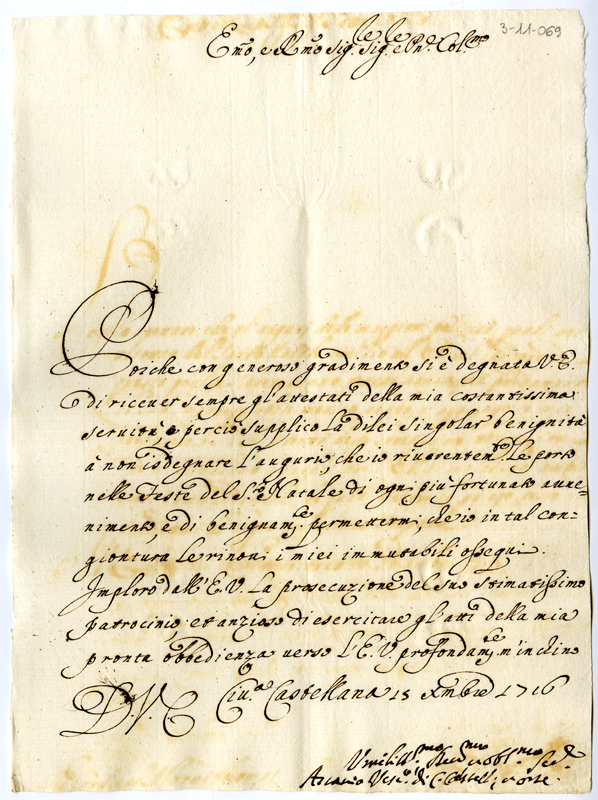 3-11-069
Emo, e Rmo Sig.re Sig.re e Pne Col.mo
Poiche con generoso gradimento si è degnata V.E.
di riceuer sempre gl'attestati della mia costantissima
seruitù, e perciò supplico la dilei singolar benignità
à non isdegnare l'augurio, che io riuerentem.te Le porto
nelle Feste del S.to Natale di ogni più fortunato auue=
nimento, e di benignam.te permettermi, che io in tal con=
giontura Le rinoui i miei immutabili ossequi.
Imploro dall'E.V. La prosecuzione del suo stimatissimo
patrocinio, et anzioso di esercitare gl'atti della mia
pronta obbedienza verso l'E.V. profondam.te m'inchino
D.V.E. Ciu.a Castellana 15 Xmbre 1716
Vmiliss.mo Deu.mo Obbl.mo Ser.
Ascanio Vesc.o di C. Castell.